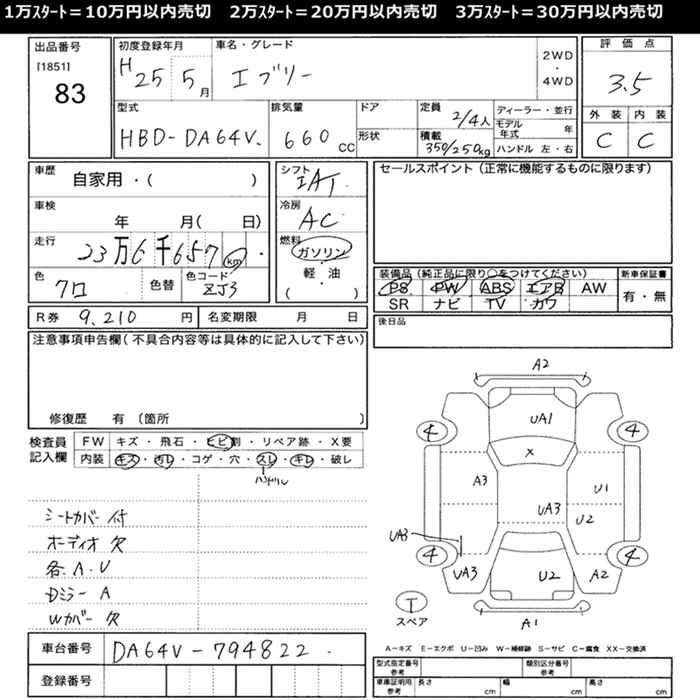 1万スタート＝10万円以内売切　2万スタート＝20万円以内売切　3万スタート＝30万円以内売切
出品番号
[1851]
83
初度登録年月
H 25 5月
車名・グレード
エブリー
2WD
・
4WD
評価点
3.5
外装 内装
C C
型式
HBD-DA64V
排気量
660 CC
ドア
形状
定員
2/4人
積載
350/250kg
ディーラー・並行
モデル年式 年
ハンドル 左・右
車歴
自家用・( )
車検
年 月( 日)
走行
23万6千657 km
色
クロ
色替
色コード
ZJ3
シフト
IAT
冷房
AC
燃料
ガソリン
・
軽・油
( )
セールスポイント（正常に機能するものに限ります）
装備品（純正品に限り○をつけてください）
PS PW ABS エアB AW
SR ナビ TV カワ
新車保証書
有・無
R券 9,210 円
名変期限 月 日
後日品
注意事項申告欄（不具合内容等は具体的に記入して下さい）
修復歴 有〔箇所 〕
検査員
記入欄
FW キズ・飛石・ヒビ割・リペア跡・X要
内装 キズ・汚レ・コゲ・穴・スレ・キレ・破レ
ハンドル
シートカバー付
オーディオ欠
各A.U
Dミラー A
Wカバー 欠
A2
UA1
4 4
X
A3
U1
UA3
U2
UA3
4 4
UA3
U2
A2
A1
T
スペア
A－キズ E－エクボ U－凹み W－補修跡 S－サビ C－腐食 XX－交換済
車台番号 DA64V-794822
登録番号
型式指定番号
参考
類別区分番号
参考
車庫証明用
参考
長さ cm 幅 cm 高さ cm